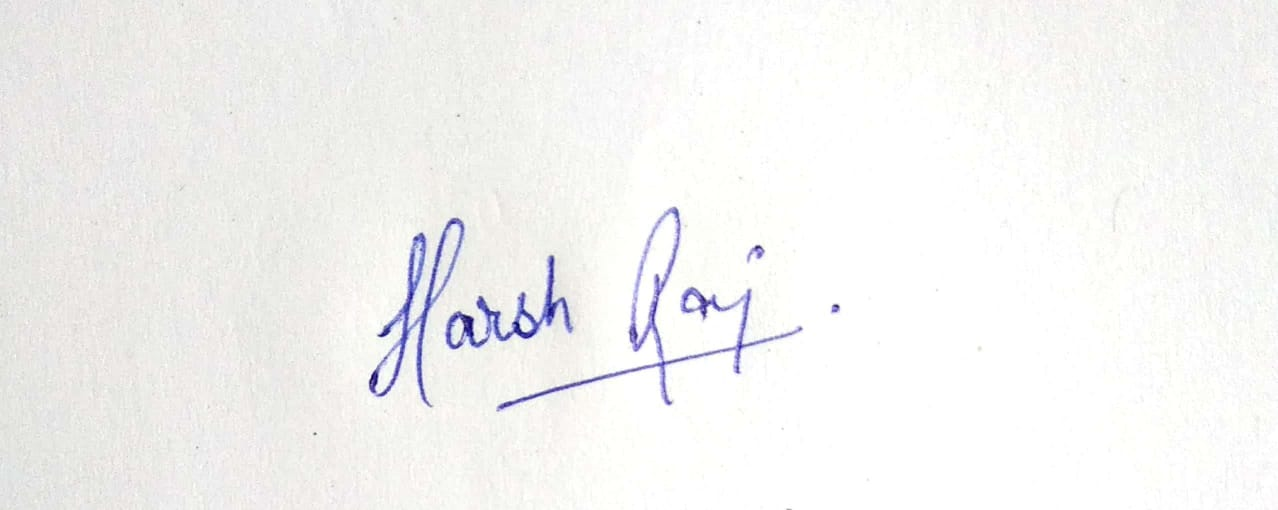 Harsh Raj.